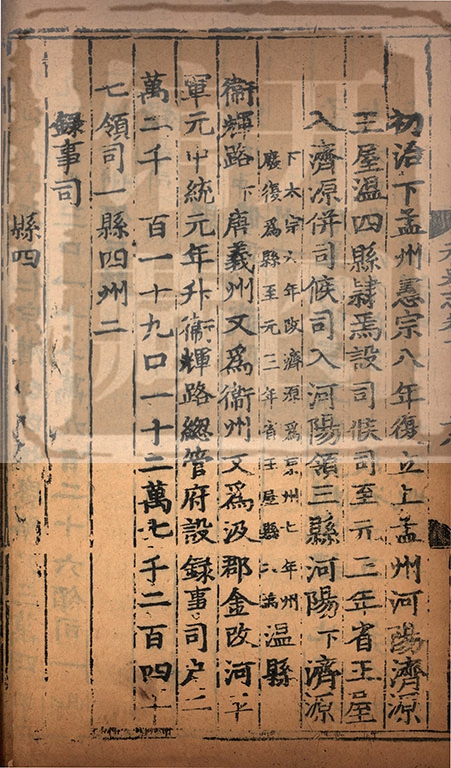 初治下孟州憲宗八年復立上孟州河陽濟源
王屋溫四縣隷焉設司候司至元三年省王屋
入濟源併司候司入河陽領三縣河陽下濟源
下太宗六年改濟源為原州七年州
廢復為縣至元三年省王屋縣入焉溫縣
衞輝路下唐義州又為衞州又為汲郡金改河平
軍元中統元年升衞輝路總管府設録事司户二
萬二千一百一十九口一十二萬七千二百四十
七領司一縣四州二
録事司
縣四